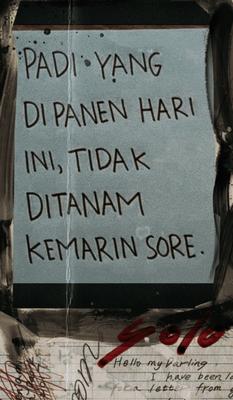 PADI YANG
DIPANEN HARI
INI, TIDAK
DITANAM
KEMARIN SORE.
Solo
Hello my Darling
I have been
letter from